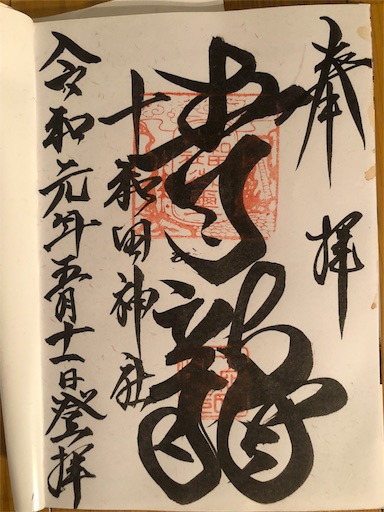 奉拝
青龍
十和田神社
令和元年五月十一日登拝